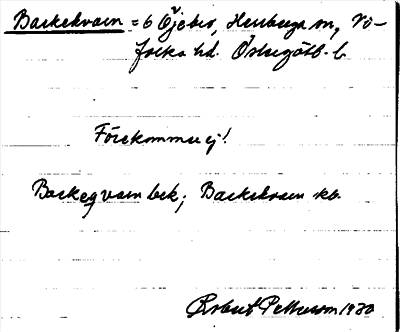 Backekvarn = 6 Öjebro, Herrberga sn, Vi-
folka hd. Östergötl. l.
Förekommer ej!
Backeqvarn bek; Backekvarn kb.
Robert Petterson 1930